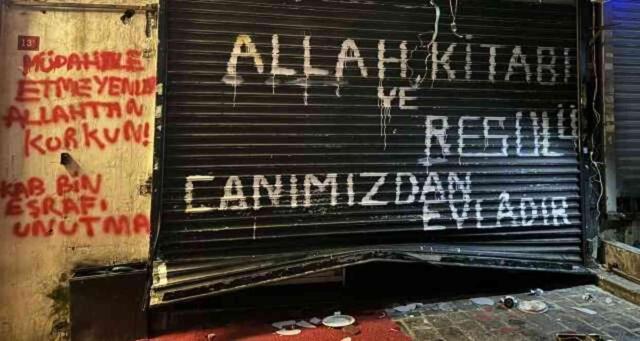 13
MÜDAHELE
ETMEYENLER
ALLAHTAN
KORKUN!
KAB BİN
EŞRAFI
UNUTMA
ALLAH KİTABI
VE
RESULÜ
CANIMIZDAN
EVLÂDIR